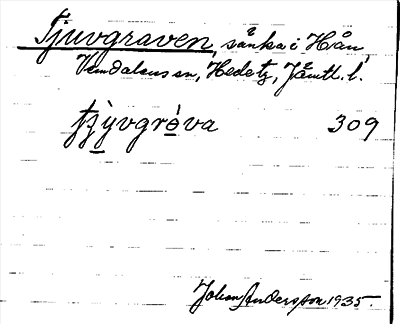 Tjuvgraven, sänka i Hån,
Vemdalens sn, Hede tg, Jämtl. l.
tjy̆vgrȯva 309
Johan Andersson 1935.